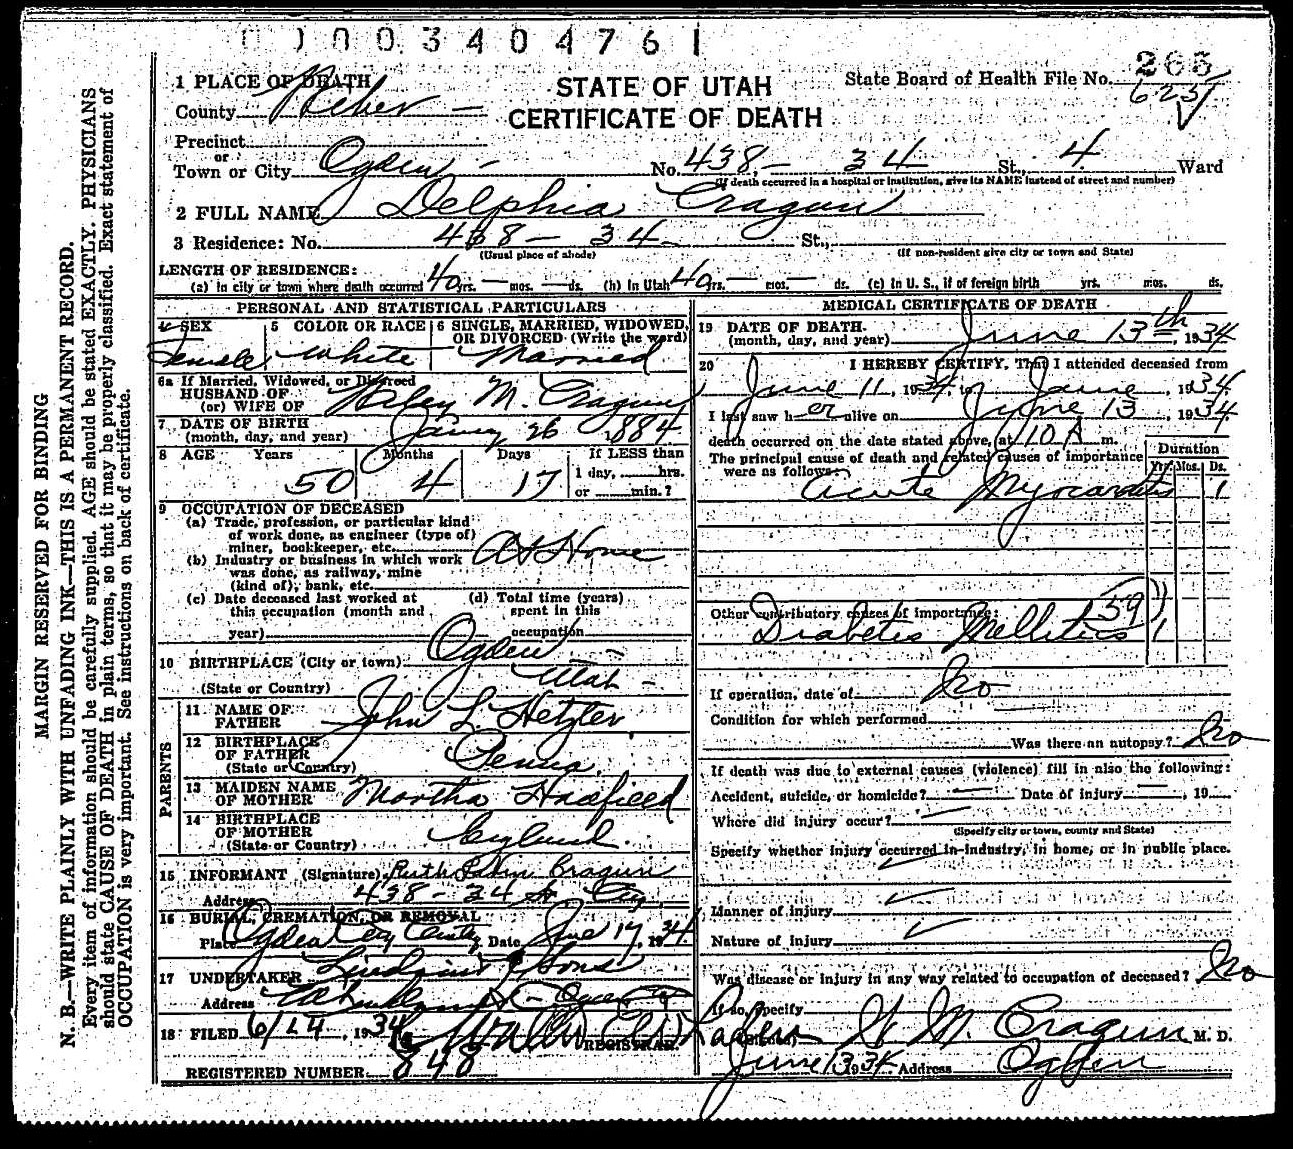 0003404761
265
1 PLACE OF DEATH
STATE OF UTAH
State Board of Health File No. 625
County Weber
CERTIFICATE OF DEATH
Precinct
or
Town or City Ogden No. 438 - 34 St., 4 Ward
(If death occurred in a hospital or institution, give its NAME instead of street and number)
2 FULL NAME Delphia Cragun
3 Residence: No. 438 - 34 St.,
(Usual place of abode) (If non-resident give city or town and State)
LENGTH OF RESIDENCE:
(a) In city or town where death occurred 40 yrs. — mos. — ds. (b) In Utah 40 yrs. — mos. — ds. (c) In U. S., if of foreign birth yrs. mos. ds.
PERSONAL AND STATISTICAL PARTICULARS
4 SEX Female
5 COLOR OR RACE White
6 SINGLE, MARRIED, WIDOWED, OR DIVORCED (Write the word) Married
6a If Married, Widowed, or Divorced
HUSBAND OF
(or) WIFE OF M. Cragun
7 DATE OF BIRTH
(month, day, and year) 26 1884
8 AGE Years Months Days If LESS than
50 4 17 1 day, hrs.
or min.?
9 OCCUPATION OF DECEASED
(a) Trade, profession, or particular kind
of work done, as engineer (type of)
miner, bookkeeper, etc. At Home
(b) Industry or business in which work
was done, as railway, mine
(kind of), bank, etc.
(c) Date deceased last worked at
this occupation (month and
year)
(d) Total time (years)
spent in this
occupation
10 BIRTHPLACE (City or town) Ogden
(State or Country) Utah
PARENTS
11 NAME OF
FATHER John L. Hetzler
12 BIRTHPLACE
OF FATHER
(State or Country) Penna.
13 MAIDEN NAME
OF MOTHER Martha Hadfield
14 BIRTHPLACE
OF MOTHER
(State or Country) England.
15 INFORMANT (Signature) Ruth Cragun
Address 438 - 34 St City
16 BURIAL, CREMATION, OR REMOVAL
Place Ogden City Date June 17, 1934
17 UNDERTAKER & Sons
Address Ogden
18 FILED 6/14, 1934
REGISTRAR
REGISTERED NUMBER 248
MEDICAL CERTIFICATE OF DEATH
19 DATE OF DEATH.
(month, day, and year) June 13th, 1934
20 I HEREBY CERTIFY, That I attended deceased from
June 11, 1934, to June, 1934.
I last saw her alive on June 13, 1934.
death occurred on the date stated above, at 10 A m.
The principal cause of death and related causes of importance
were as follows:
Duration
Yrs. Mos. Ds.
Acute Myocarditis 1
59
Other contributory causes of importance:
Diabetis Mellitus 1
If operation, date of No
Condition for which performed
Was there an autopsy? No
If death was due to external causes (violence) fill in also the following:
Accident, suicide, or homicide? — Date of injury —, 19
Where did injury occur? —
(Specify city or town, county and State)
Specify whether injury occurred in industry, in home, or in public place.
Manner of injury
Nature of injury
Was disease or injury in any way related to occupation of deceased? No
If so, specify
M. Cragun M. D.
June 13 1934 Address Ogden
MARGIN RESERVED FOR BINDING
N. B.—WRITE PLAINLY WITH UNFADING INK—THIS IS A PERMANENT RECORD.
Every item of information should be carefully supplied. AGE should be stated EXACTLY. PHYSICIANS
should state CAUSE OF DEATH in plain terms, so that it may be properly classified. Exact statement of
OCCUPATION is very important. See instructions on back of certificate.